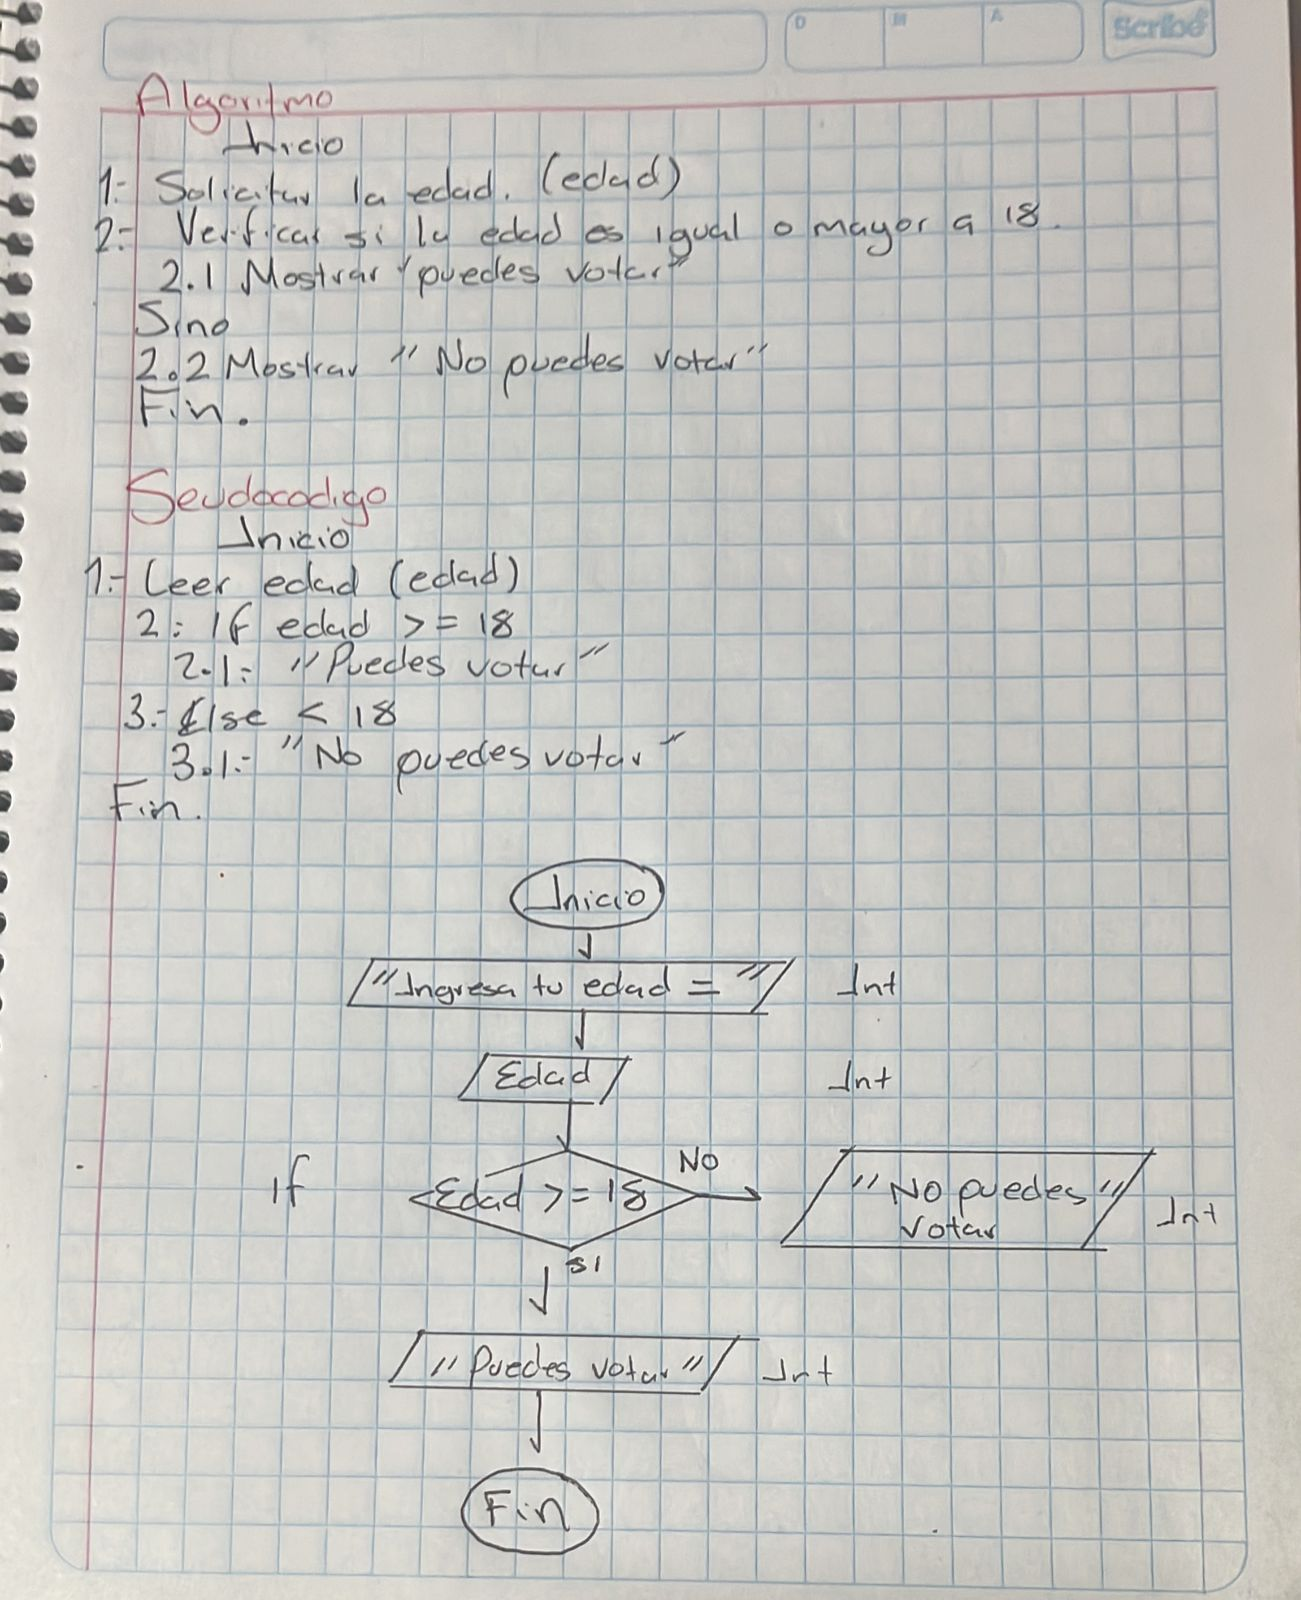 D M A Scribe
Algoritmo
Inicio
1.- Solicitar la edad. (edad)
2.- Verficar si la edad es igual o mayor a 18.
2.1 Mostrar "puedes votar"
Sino
2.2 Mostrar "No puedes votar"
Fin.
Seudocodigo
Inicio
1.- Leer edad (edad)
2: If edad >= 18
2.1.- "Puedes votar"
3.- Else < 18
3.1.- "No puedes votar"
Fin.
Inicio
"Ingresa tu edad = " Int
Edad Int
NO
If Edad >= 18 "No puedes"
votar Int
SI
"Puedes votar" Int
Fin